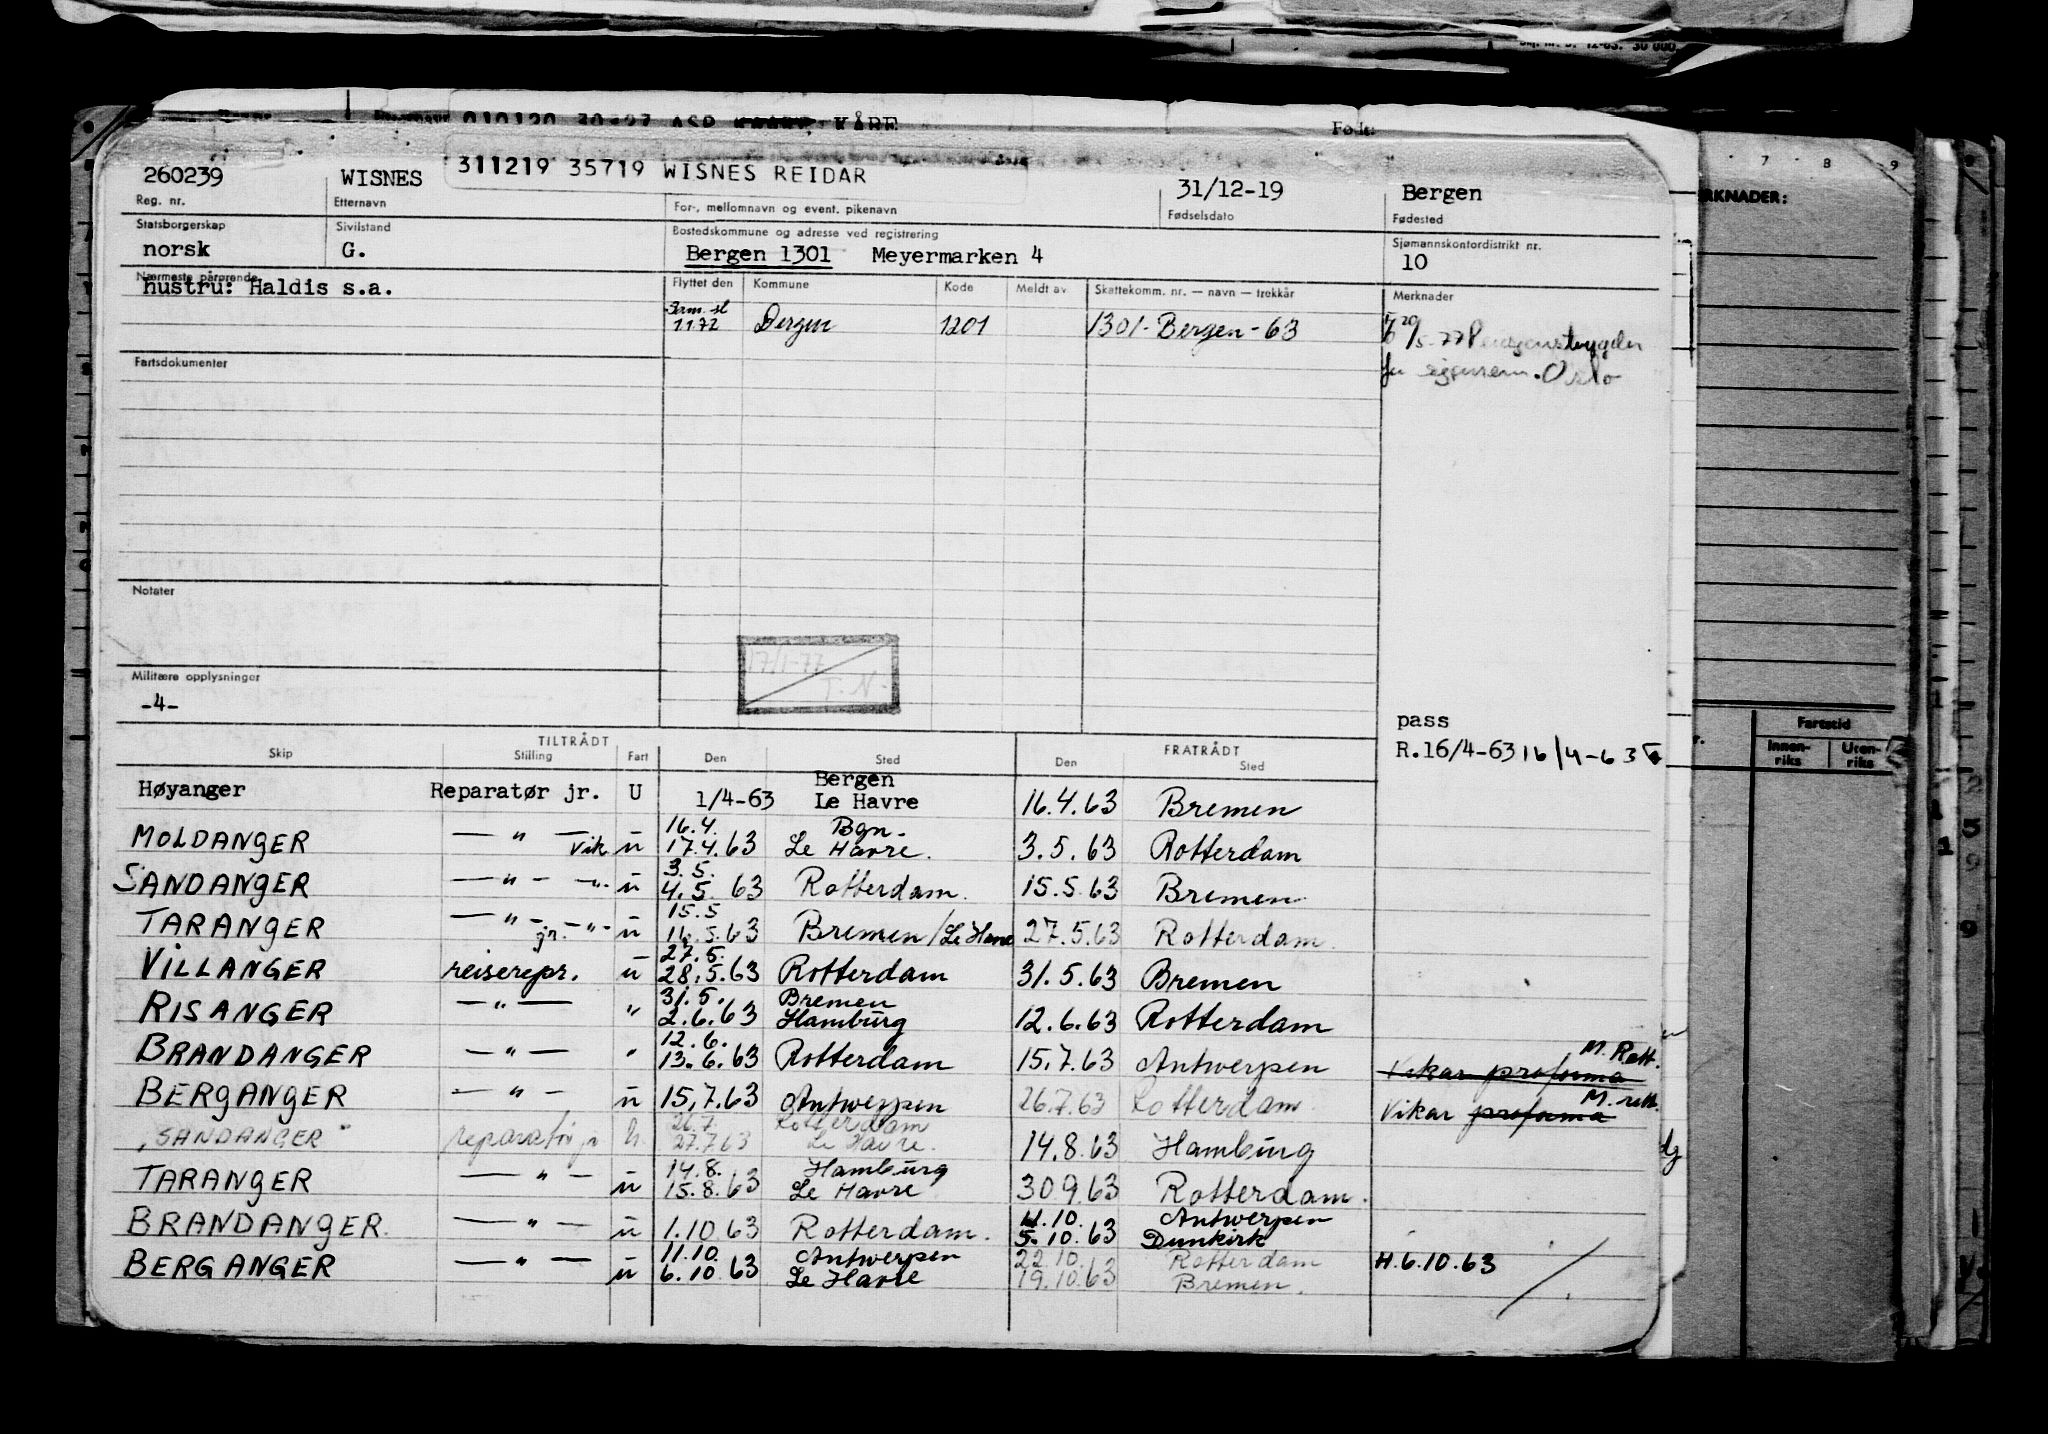 010120
KÅRE
Født
260239 WISNES 311219 35719 WISNES REIDAR 31/12-19 Bergen
Reg. nr. Etternavn For-, mellomnavn og event. pikenavn Fødselsdato Fødested
Statsborgerskap Sivilstand Bostedskommune og adresse ved registrering Sjømannskontordistrikt nr.
norsk G. Bergen 1301 Meyermarken 4 10
Nærmeste pårørende Flyttet den Kommune Kode Meldt av Skattekomm. nr. — navn — trekkår Merknader
hustru: Haldis s.a.
1.1.72 Bergen 1201 1301-Bergen-63
Oslo
Fartsdokumenter
Notater
17/1-77
T.N.
Militære opplysninger
-4-
pass
R.16/4-63 16/4-63
TILTRÅDT FRATRÅDT
Skip Stilling Fart Den Sted Den Sted
Høyanger Reparatør jr. U 1/4-63 Bergen Le Havre 16.4.63 Bremen
MOLDANGER — " — Vik u 16.4. 17.4.63 Bgn. Le Havre. 3.5.63 Rotterdam
SANDANGER — " — -"- u 3.5. 4.5.63 Rotterdam. 15.5.63 Bremen
TARANGER — " — -"- u 15.5 16.5.63 Bremen/Le Havre 27.5.63 Rotterdam.
VILLANGER reiserepr. jr. u 27.5. 28.5.63 Rotterdam 31.5.63 Bremen
RISANGER — " — " 31.5. 2.6.63 Bremen Hamburg 12.6.63 Rotterdam
BRANDANGER — " — " 12.6. 13.6.63 Rotterdam 15.7.63 Antwerpen Vikar proforma M. Rott.
BERGANGER — " — u 15.7.63 Antwerpen 26.7.63 Rotterdam Vikar proforma M. rett.
"SANDANGER" reparatør jr u. 26.7 27.7.63 Rotterdam Le Havre. 14.8.63 Hamburg
TARANGER — " — u 14.8. 15.8.63 Hamburg Le Havre 30.9.63 Rotterdam.
BRANDANGER. — " — u 1.10.63 Rotterdam. 11.10. 5.10.63 Antwerpen Dunkirk
BERGANGER — " — u 11.10. 6.10.63 Antwerpen Le Havre 22.10. 19.10.63 Rotterdam Bremen. H.6.10.63
7 8 9
RKNADER:
Fartstid
Innen-riks Uten-riks